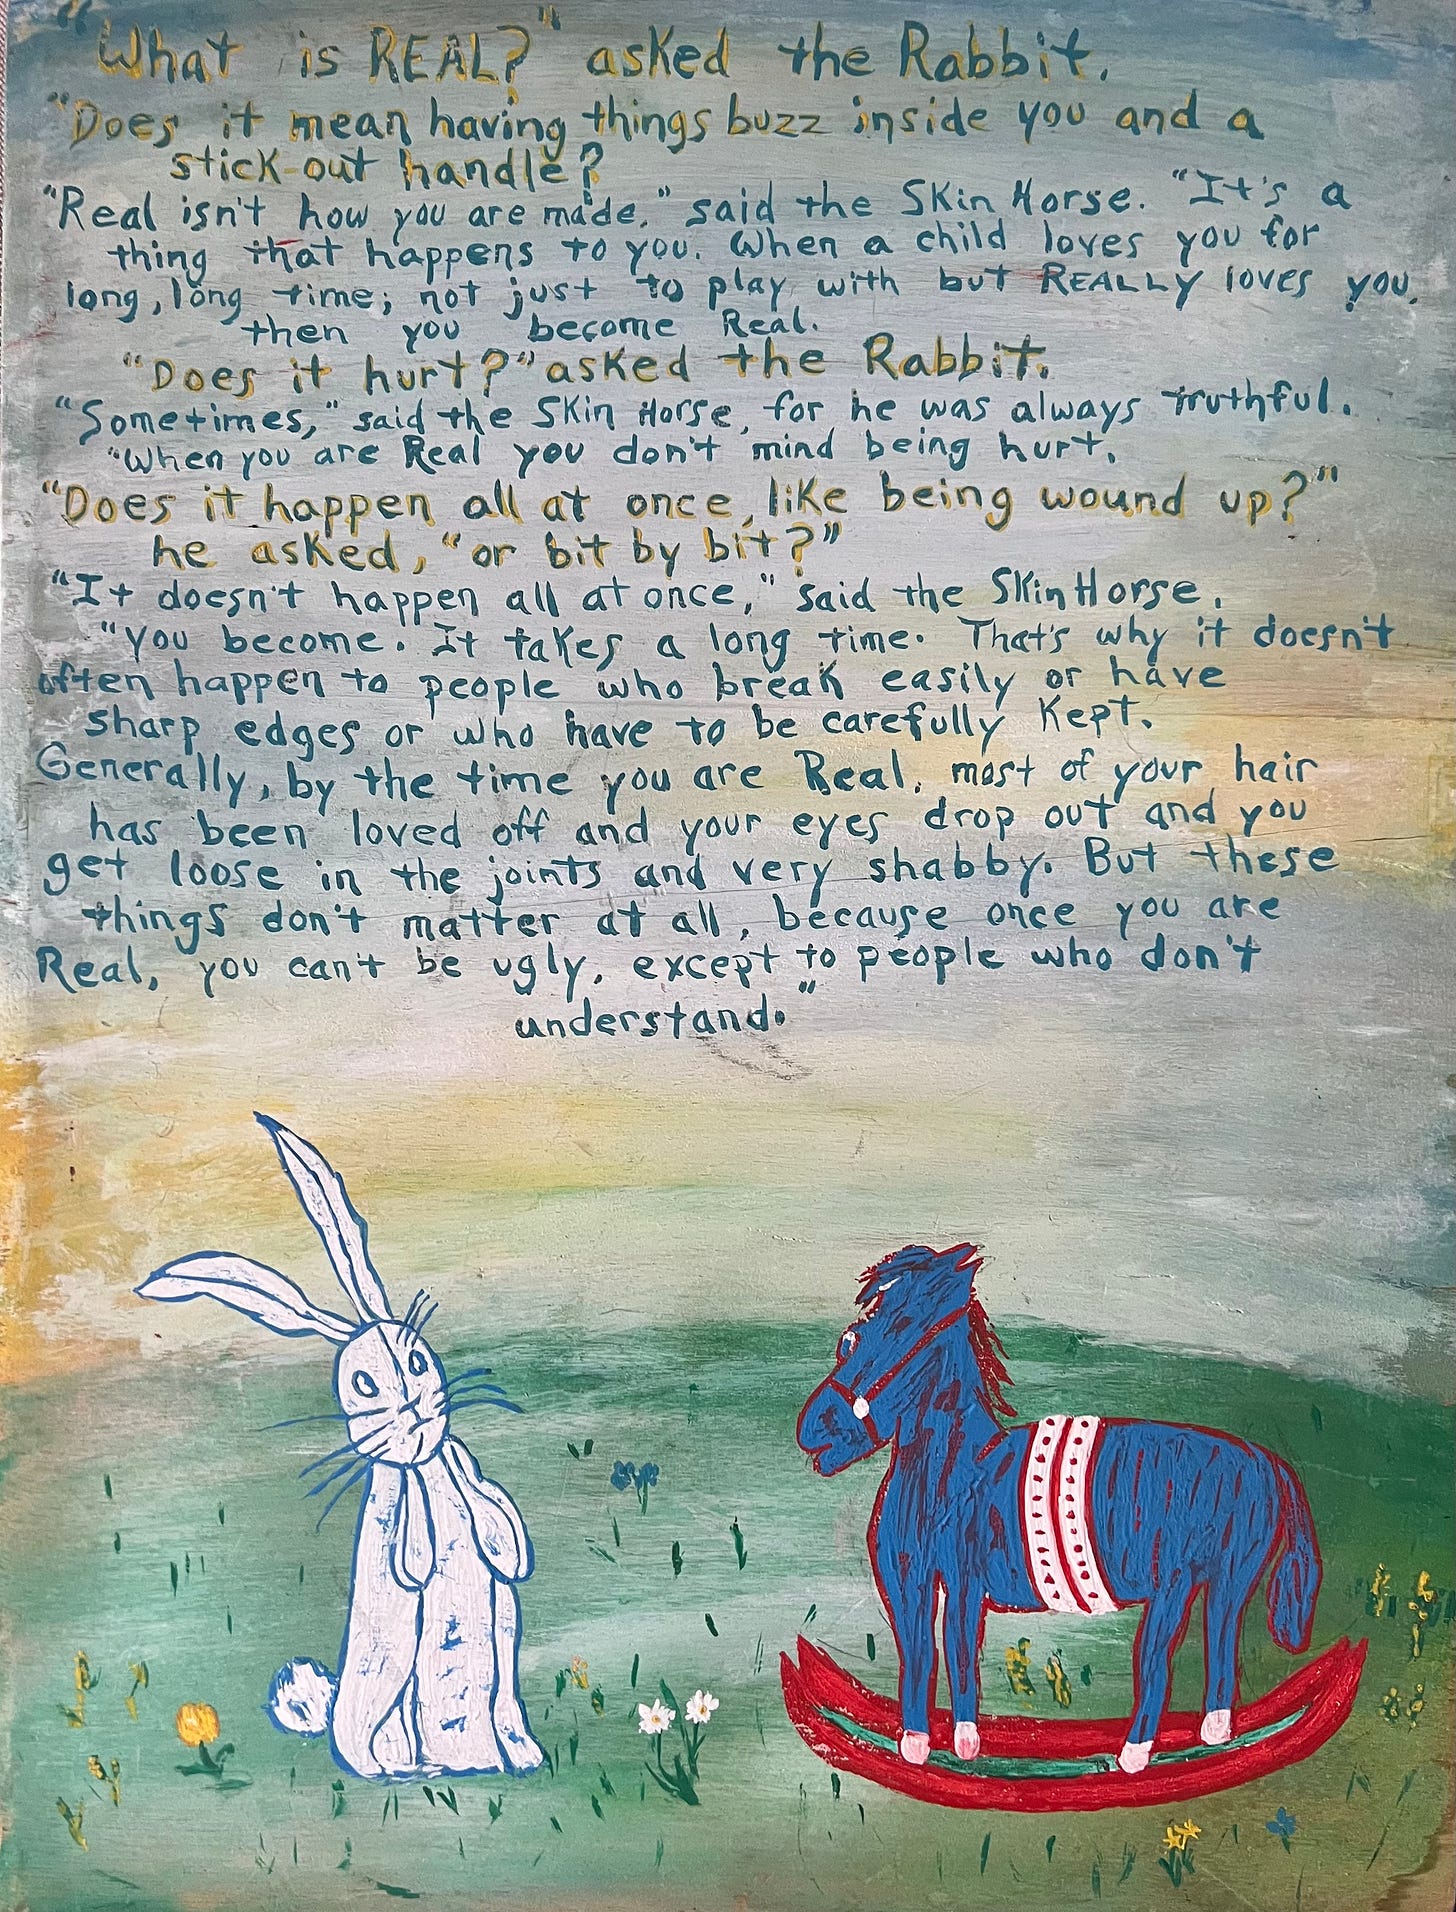 "What is REAL?" asked the Rabbit.
"Does it mean having things buzz inside you and a
stick-out handle?
"Real isn't how you are made," said the Skin Horse. "It's a
thing that happens to you. When a child loves you for
long, long time; not just to play with but REALLY loves you,
then you become Real.
"Does it hurt?" asked the Rabbit.
"Sometimes," said the Skin Horse, for he was always truthful.
"When you are Real you don't mind being hurt.
"Does it happen all at once, like being wound up?"
he asked, "or bit by bit?"
"It doesn't happen all at once," said the Skin Horse.
"You become. It takes a long time. That's why it doesn't
often happen to people who break easily or have
sharp edges or who have to be carefully kept.
Generally, by the time you are Real, most of your hair
has been loved off and your eyes drop out and you
get loose in the joints and very shabby. But these
things don't matter at all, because once you are
Real, you can't be ugly, except to people who don't
understand."